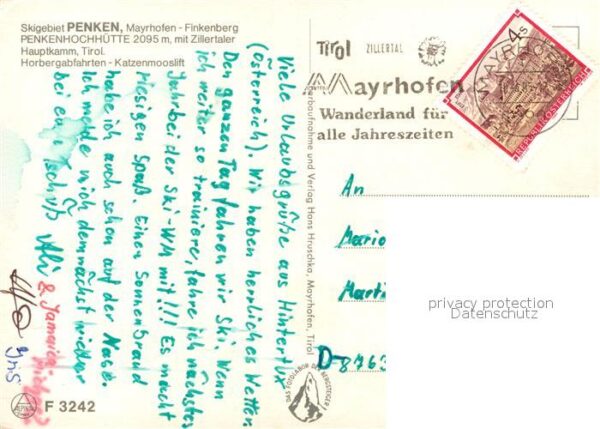 Skigebiet PENKEN, Mayrhofen - Finkenberg
PENKENHOCHHÜTTE 2095 m, mit Zillertaler
Hauptkamm, Tirol.
Horbergabfahrten - Katzenmooslift
Viele Urlaubsgrüße aus Hintertux
(Österreich). Wir haben herrliches Wetter.
Den ganzen Tag fahren wir Ski. Wenn
ich weiter so trainiere, fahre ich nächstes
Jahr bei der Ski-WM mit!!! Es macht
riesigen Spaß. Einen Sonnenbrand
habe ich auch schon auf der Nase.
Ich melde mich demnächst wieder
bei euch Tschüß
& Jamaica-
Iris
F 3242
Luftaufnahme und Verlag Hans Hruschka, Mayrhofen, Tirol
DAS FOTOLABOR DER BERGSTEIGER
Tirol ZILLERTAL
Mayrhofen
Wanderland für
alle Jahreszeiten
MAYRHOFEN
4 S
REPUBLIK ÖSTERREICH
An
Mario
Marti
D-8763
privacy protection
Datenschutz